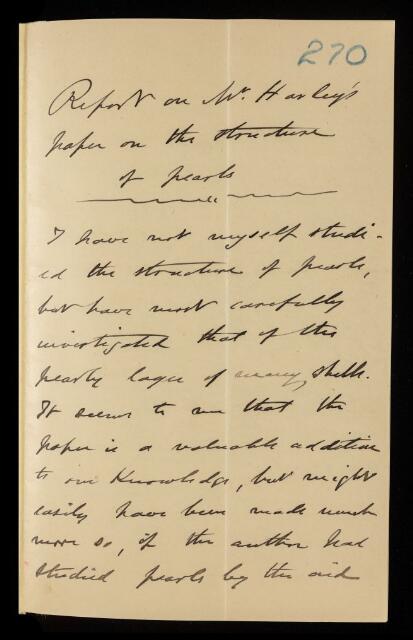 270
Report on Mr. Harley's
paper on the structure
of pearls
I have not myself studi-
ed the structure of pearls,
but have most carefully
investigated that of the
pearly layer of many shells.
It seems to me that the
paper is a valuable addition
to our Knowledge, but might
easily have been made much
more so, if the author had
studied pearls by the aid